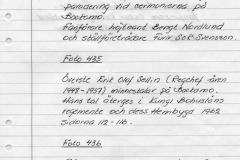 paradering vid ceremonierna på
Backamo.
Fanförare löjtnant Bengt Nordlund
och ställföreträdare Furir S-Svensson.
Foto 435
Överste Erik Olaf Sellin (Regchef åren
1948-1957) minnestalar på Backamo.
Hans tal återges i Kungl Bohusläns
regemente och dess Hembygd 1962
sidorna 112-116.
Foto 436